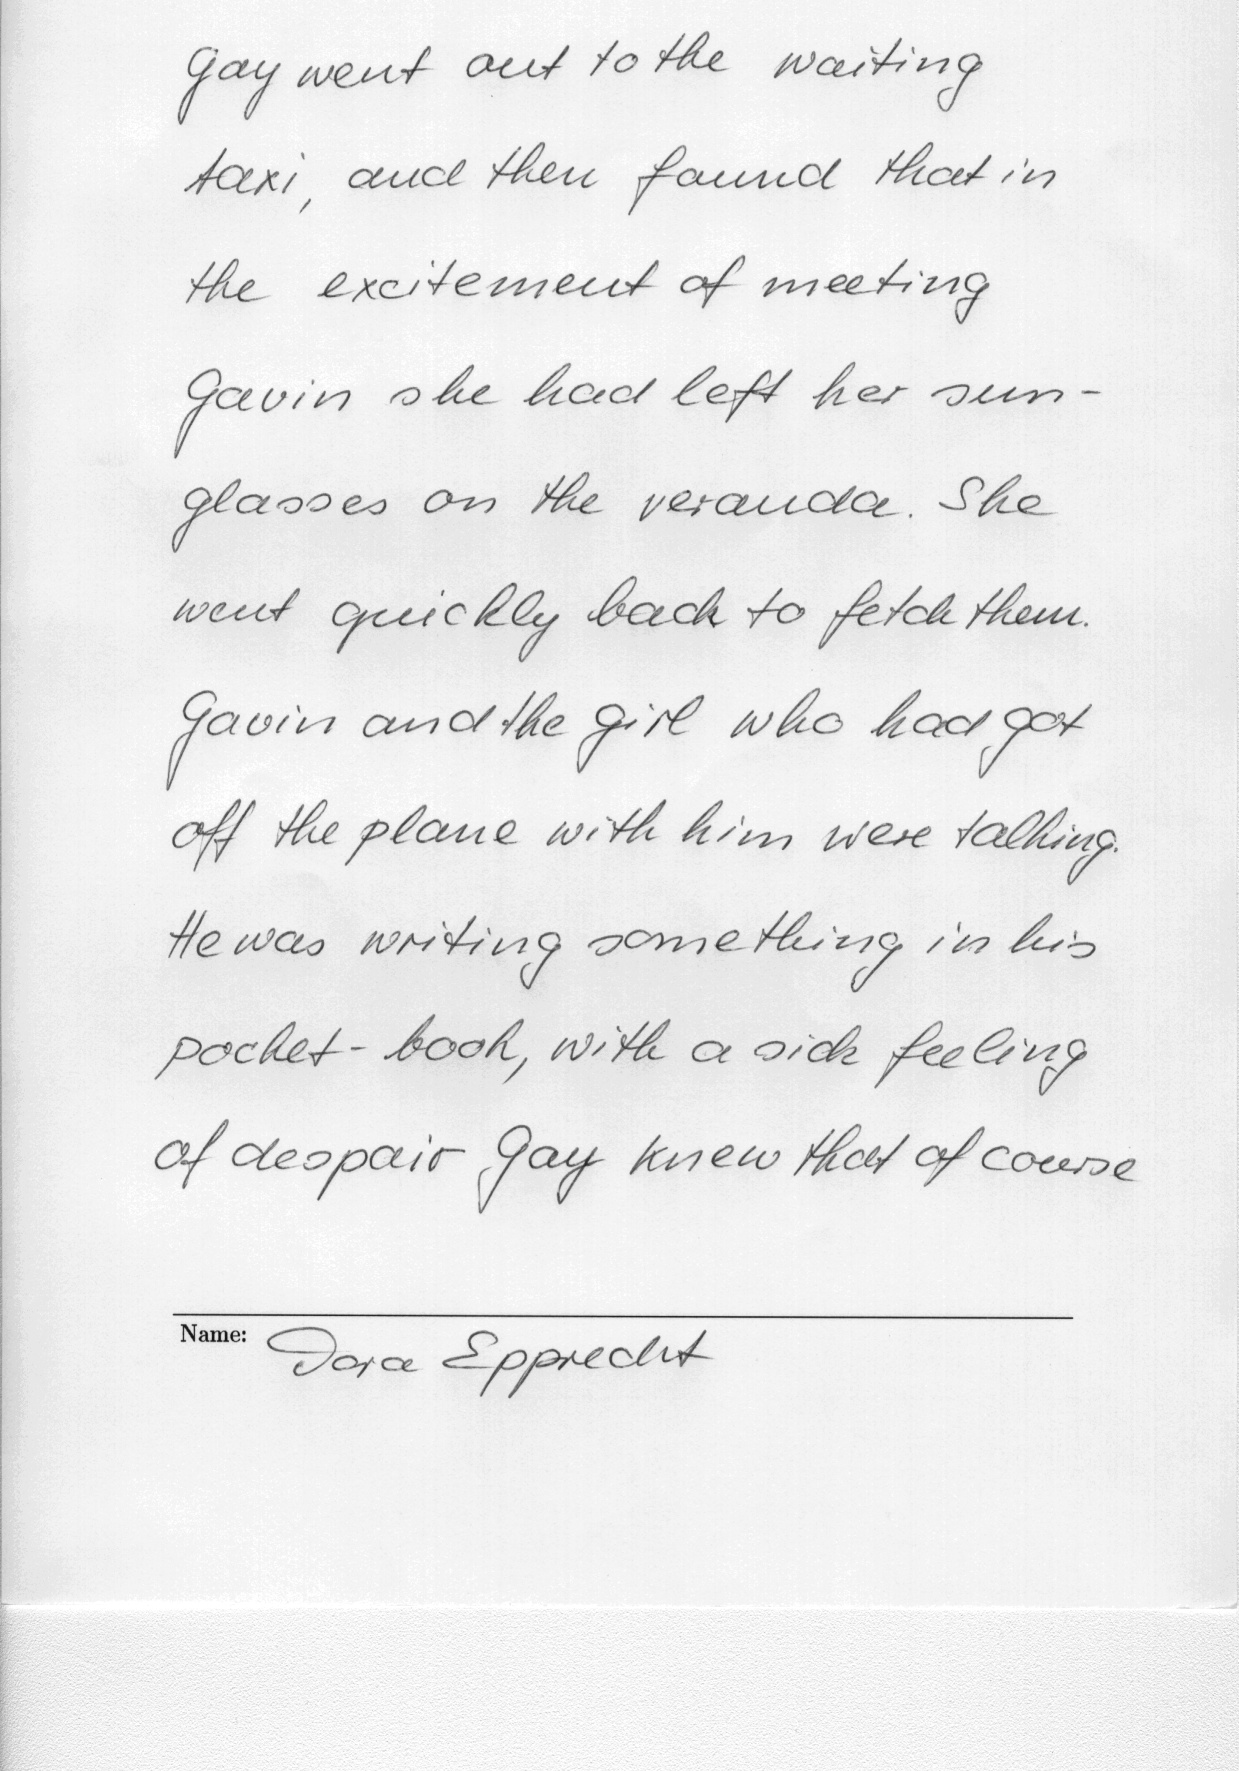 Gay went out to the waiting
taxi, and then found that in
the excitement of meeting
Gavin she had left her sun-
glasses on the veranda. She
went quickly back to fetch them.
Gavin and the girl who had got
off the plane with him were talking.
He was writing something in his
pocket-book, with a sick feeling
of despair Gay knew that of course
Name: Dora Epprecht